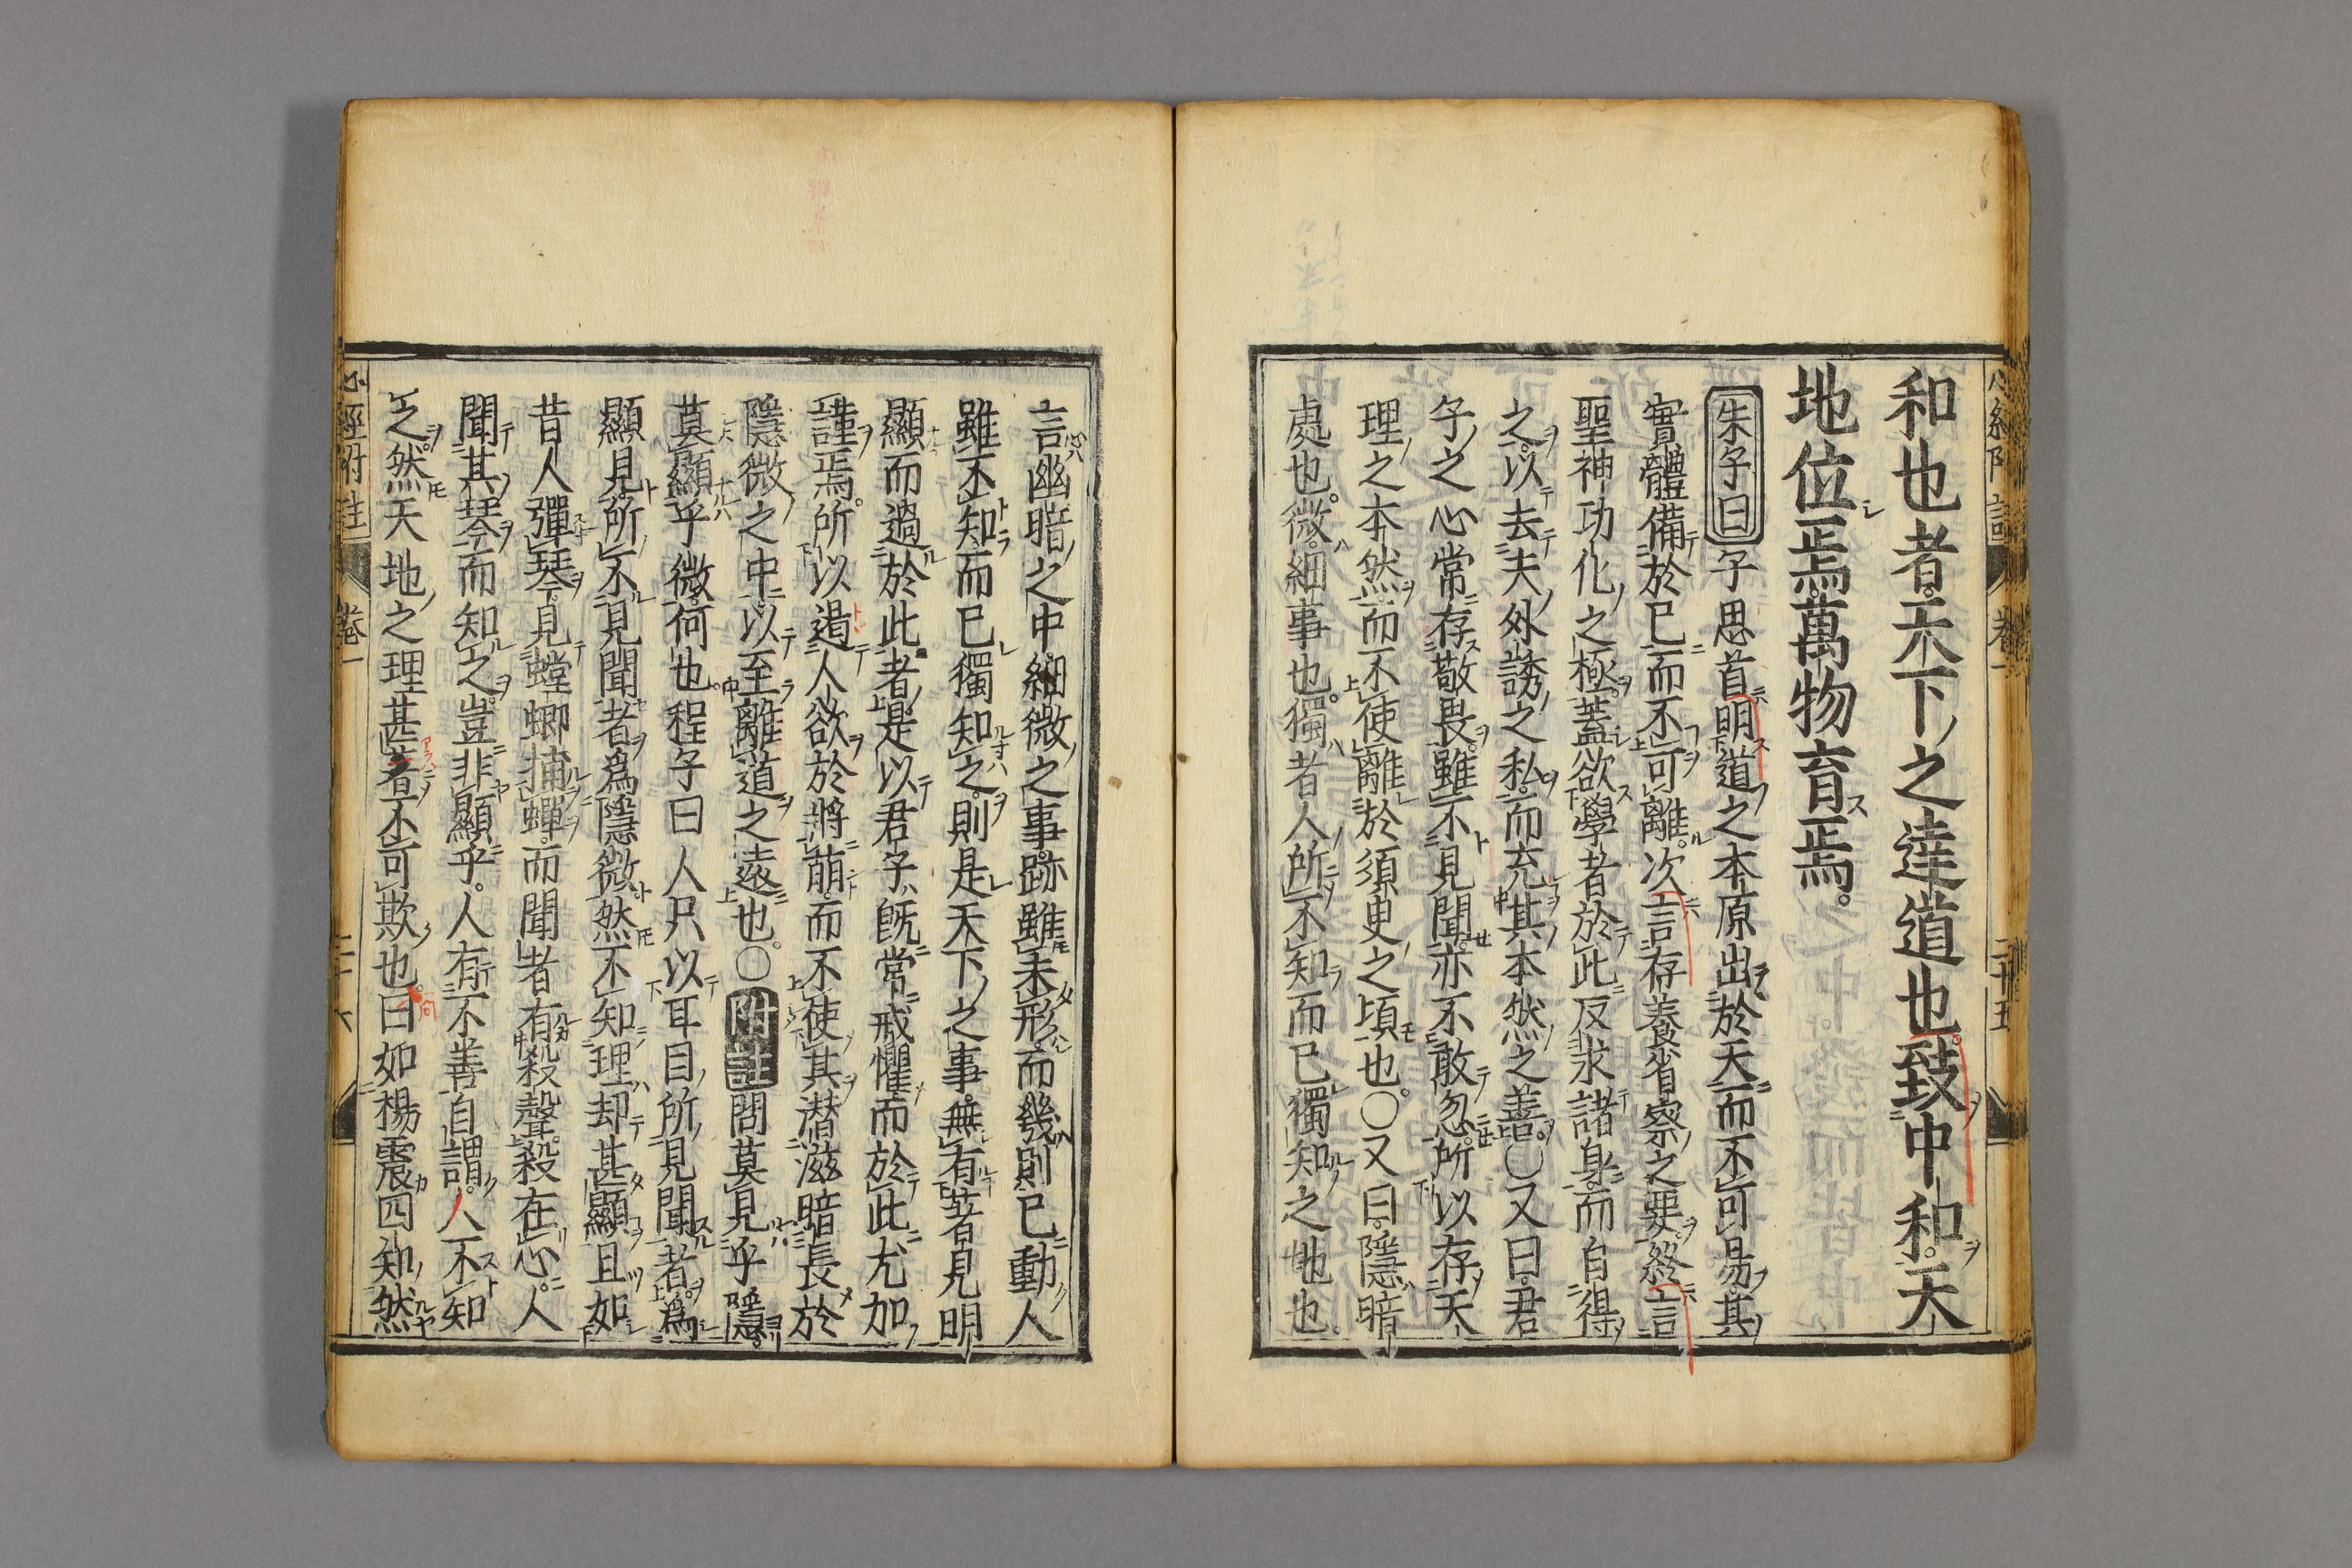 和也者天下之達道也致中和天
地位焉萬物育焉
朱子曰子思首明道之本原出於天而不可易其
實體備於已而不可離次言存養省察之要終言
聖神功化之極蓋欲學者於此反求諸身而自得
之以去夫外誘之私而充其本然之善○又曰君
子之心常存敬畏雖不見聞亦不敢忽所以存天
理之本然而不使離於須臾之頃也○又曰隱暗
處也微細事也獨者人所不知而已獨知之地也
言幽暗之中細微之事跡雖未形而幾則已動人
雖不知而已獨知之則是天下之事無有著見明
顯而過於此者是以君子既常戒懼而於此尤加
謹焉所以遏人欲於將萌而不使其潜滋暗長於
隱微之中以至離道之遠也○附註問莫見乎隱
莫顯乎微何也程子曰人只以耳目所見聞者爲
顯見所不見聞者爲隱微然不知理却甚顯且如
昔人彈琴見螳蜋捕蟬而聞者有殺聲殺在心人
聞其琴而知之豈非顯乎人有不善自謂人不知
之然天地之理甚著不可欺也曰如楊震四知然
心經附註 卷一 二十六